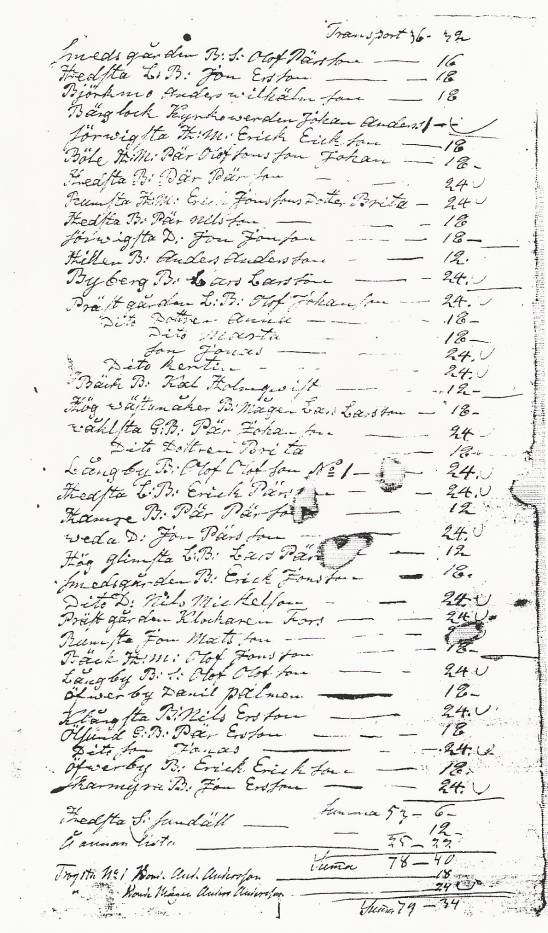 Transport 36 - 32
Smedsgården B: S: Olof Pärsson — 16
Hedsta L: B: Jon Ersson — 18
Björkmo Anders wilhälm son — 18
Bärglock Kyrkowerden Johan Anders 1 -
Sörwigsta H: M: Erick Erickson — 18
Böle H: M: Pär Olofsons son Johan — 18 -
Hedsta B: Pär Pär son — 24
Rumsta H: M: Erick Jonssons Doter Brita - 24
Hedsta B: Pär Nilsson — 18
Sörwigsta D: Jon Jonson — 18 -
Hillen B: Anders Andersson — 12.
Byberg B: Lars Larsson — 24.
Prästgården L: B: Olof Johanson — 24.
Dito Dottren Anna — 18 -
Dito Marta — 18 -
Son Jonas — 24.
Dito Kerstin — 24.
Bäck B: Kal Holmqwist — 12 -
Hög Lars Larsson — 18 -
wählsta G: B: Pär Johanson — 24
Dito Dottren Brita — 18 -
Långby B: Olof Olofson No 1 — 24.
Hedsta L: B: Erick Pärsson — 24.
Hamre B: Pär Pärson — 12
weda D: Jon Pärsson — 24.
Hög Glimsta L: B: Lars Pär — 12
Smedsgården B: Erick Jonsson — 18.
Dito D: Nils Mickelson — 24.
Prästgården Klockaren Fors — 24
Rumsta Jon Matsson —
Bäck H: M: Olof Jonsson — 18 -
Långby B: S: Olof Olofson — 24.
Öfwerby Danil Palmen — 18 -
Klångsta B: Nils Ersson — 24.
Ölsund G: B: Pär Ersson — 18 -
Dito son Jonas — 24.
Öfwerby B: Erick Erickson — 18.
Skarmyra B: Jon Ersson — 24.
Summa 53 - 6 -
Hedsta S: Sundäll — 12 -
Å annan lista — 25 - 22
Suma 78 - 40
Trogsta No 1 And. Andersson — 18
Anders Andersson — 24
Suma 79 - 34